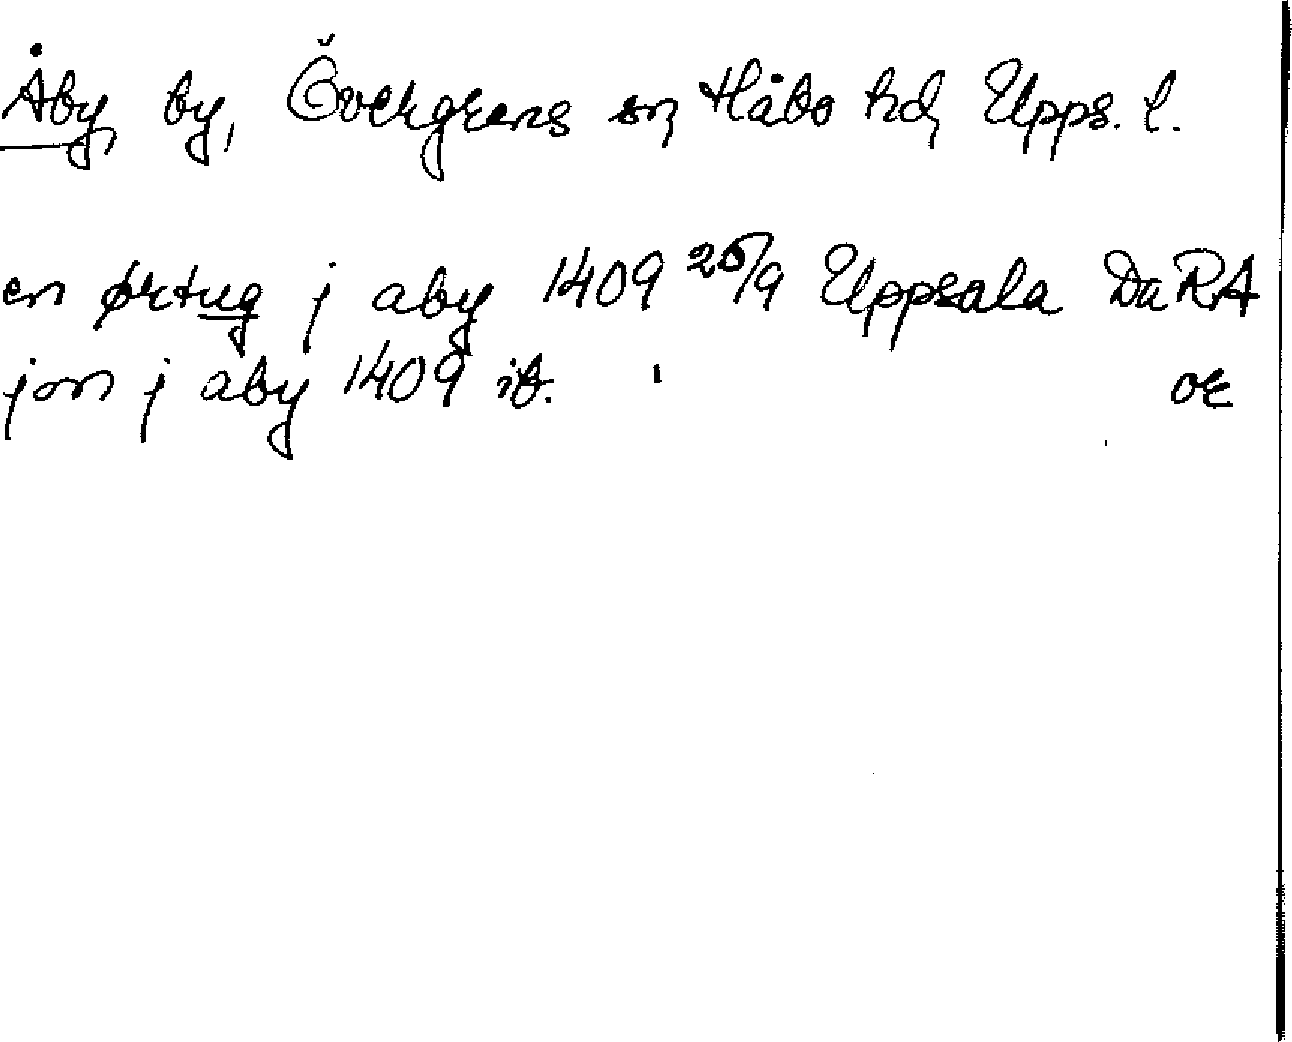 Åby, by, Övergrens sn, Håbo hd, Upps. l.
en ørtug j aby 1409 25/9 Uppsala Da RA
jon j aby 1409 ib. or